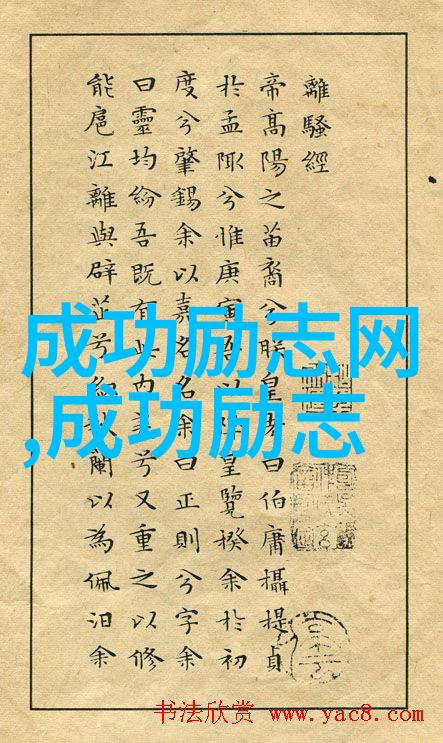 離騷經
帝高陽之苗裔兮朕皇考曰伯庸攝提貞
於孟陬兮惟庚寅吾以降皇覽揆余於初
度兮肇錫余以嘉名名余曰正則兮字余
曰靈均紛吾既有此內美兮又重之以修
能扈江離與辟芷兮紉秋蘭以為佩汨余
成功励志网
,成功励志
书法欣赏 www.yac8.com